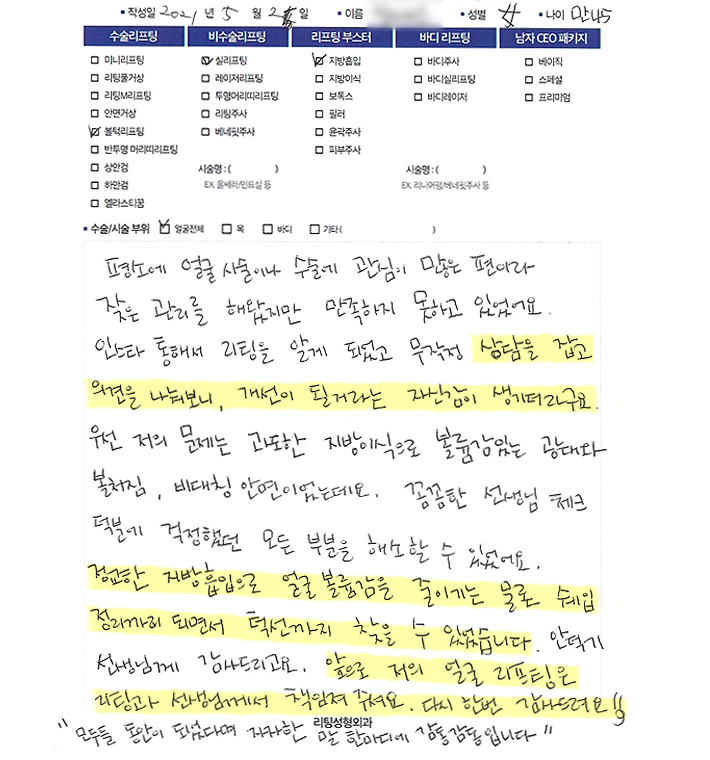 • 작성일 2021 년 5 월 2 일 • 이름 • 성별 여 • 나이 만45
수술리프팅 비수술리프팅 리프팅 부스터 바디 리프팅 남자 CEO 패키지
미니리프팅 실리프팅 지방흡입 바디주사 베이직
리팅풀거상 레이저리프팅 지방이식 바디실리프팅 스페셜
리팅M리프팅 투명머리띠리프팅 보톡스 바디레이저 프리미엄
안면거상 리팅주사 필러
볼턱리프팅 베네핏주사 윤곽주사
반투명 머리띠리프팅 피부주사
상안검 시술명 : ( ) 시술명 : ( )
하안검 EX. 울쎄라/민트실 등 EX. 리니어펌/베네핏주사 등
엘라스티꿈
• 수술/시술 부위 얼굴전체 목 바디 기타 ( )
평상소에 얼굴 시술이나 수술에 관심이 많은 편이라
잦은 관리를 해왔지만 만족하지 못하고 있었어요.
인스타 통해서 리팅을 알게 되었고 무작정 상담을 잡고
의견을 나눠보니, 개선이 될거라는 자신감이 생기더라구요.
우선 저의 문제는 과도한 지방이식으로 볼륨감있는 광대와
볼처짐, 비대칭 안면이었는데요. 꼼꼼한 선생님 체크
덕분에 걱정했던 모든 부분을 해소할 수 있었어요.
정교한 지방흡입으로 얼굴 볼륨감을 줄이게는 물론 쉐입
정리까지 되면서 턱선까지 찾을 수 있었습니다. 안덕기
선생님께 감사드리고요. 앞으로 저의 얼굴 리프팅은
리팅과 선생님께서 책임져 주셔요. 다시 한번 감사드려요!!
리팅성형외과
" 모두들 동안이 되었다며 지나한 말 한마디에 감동감동입니다 "